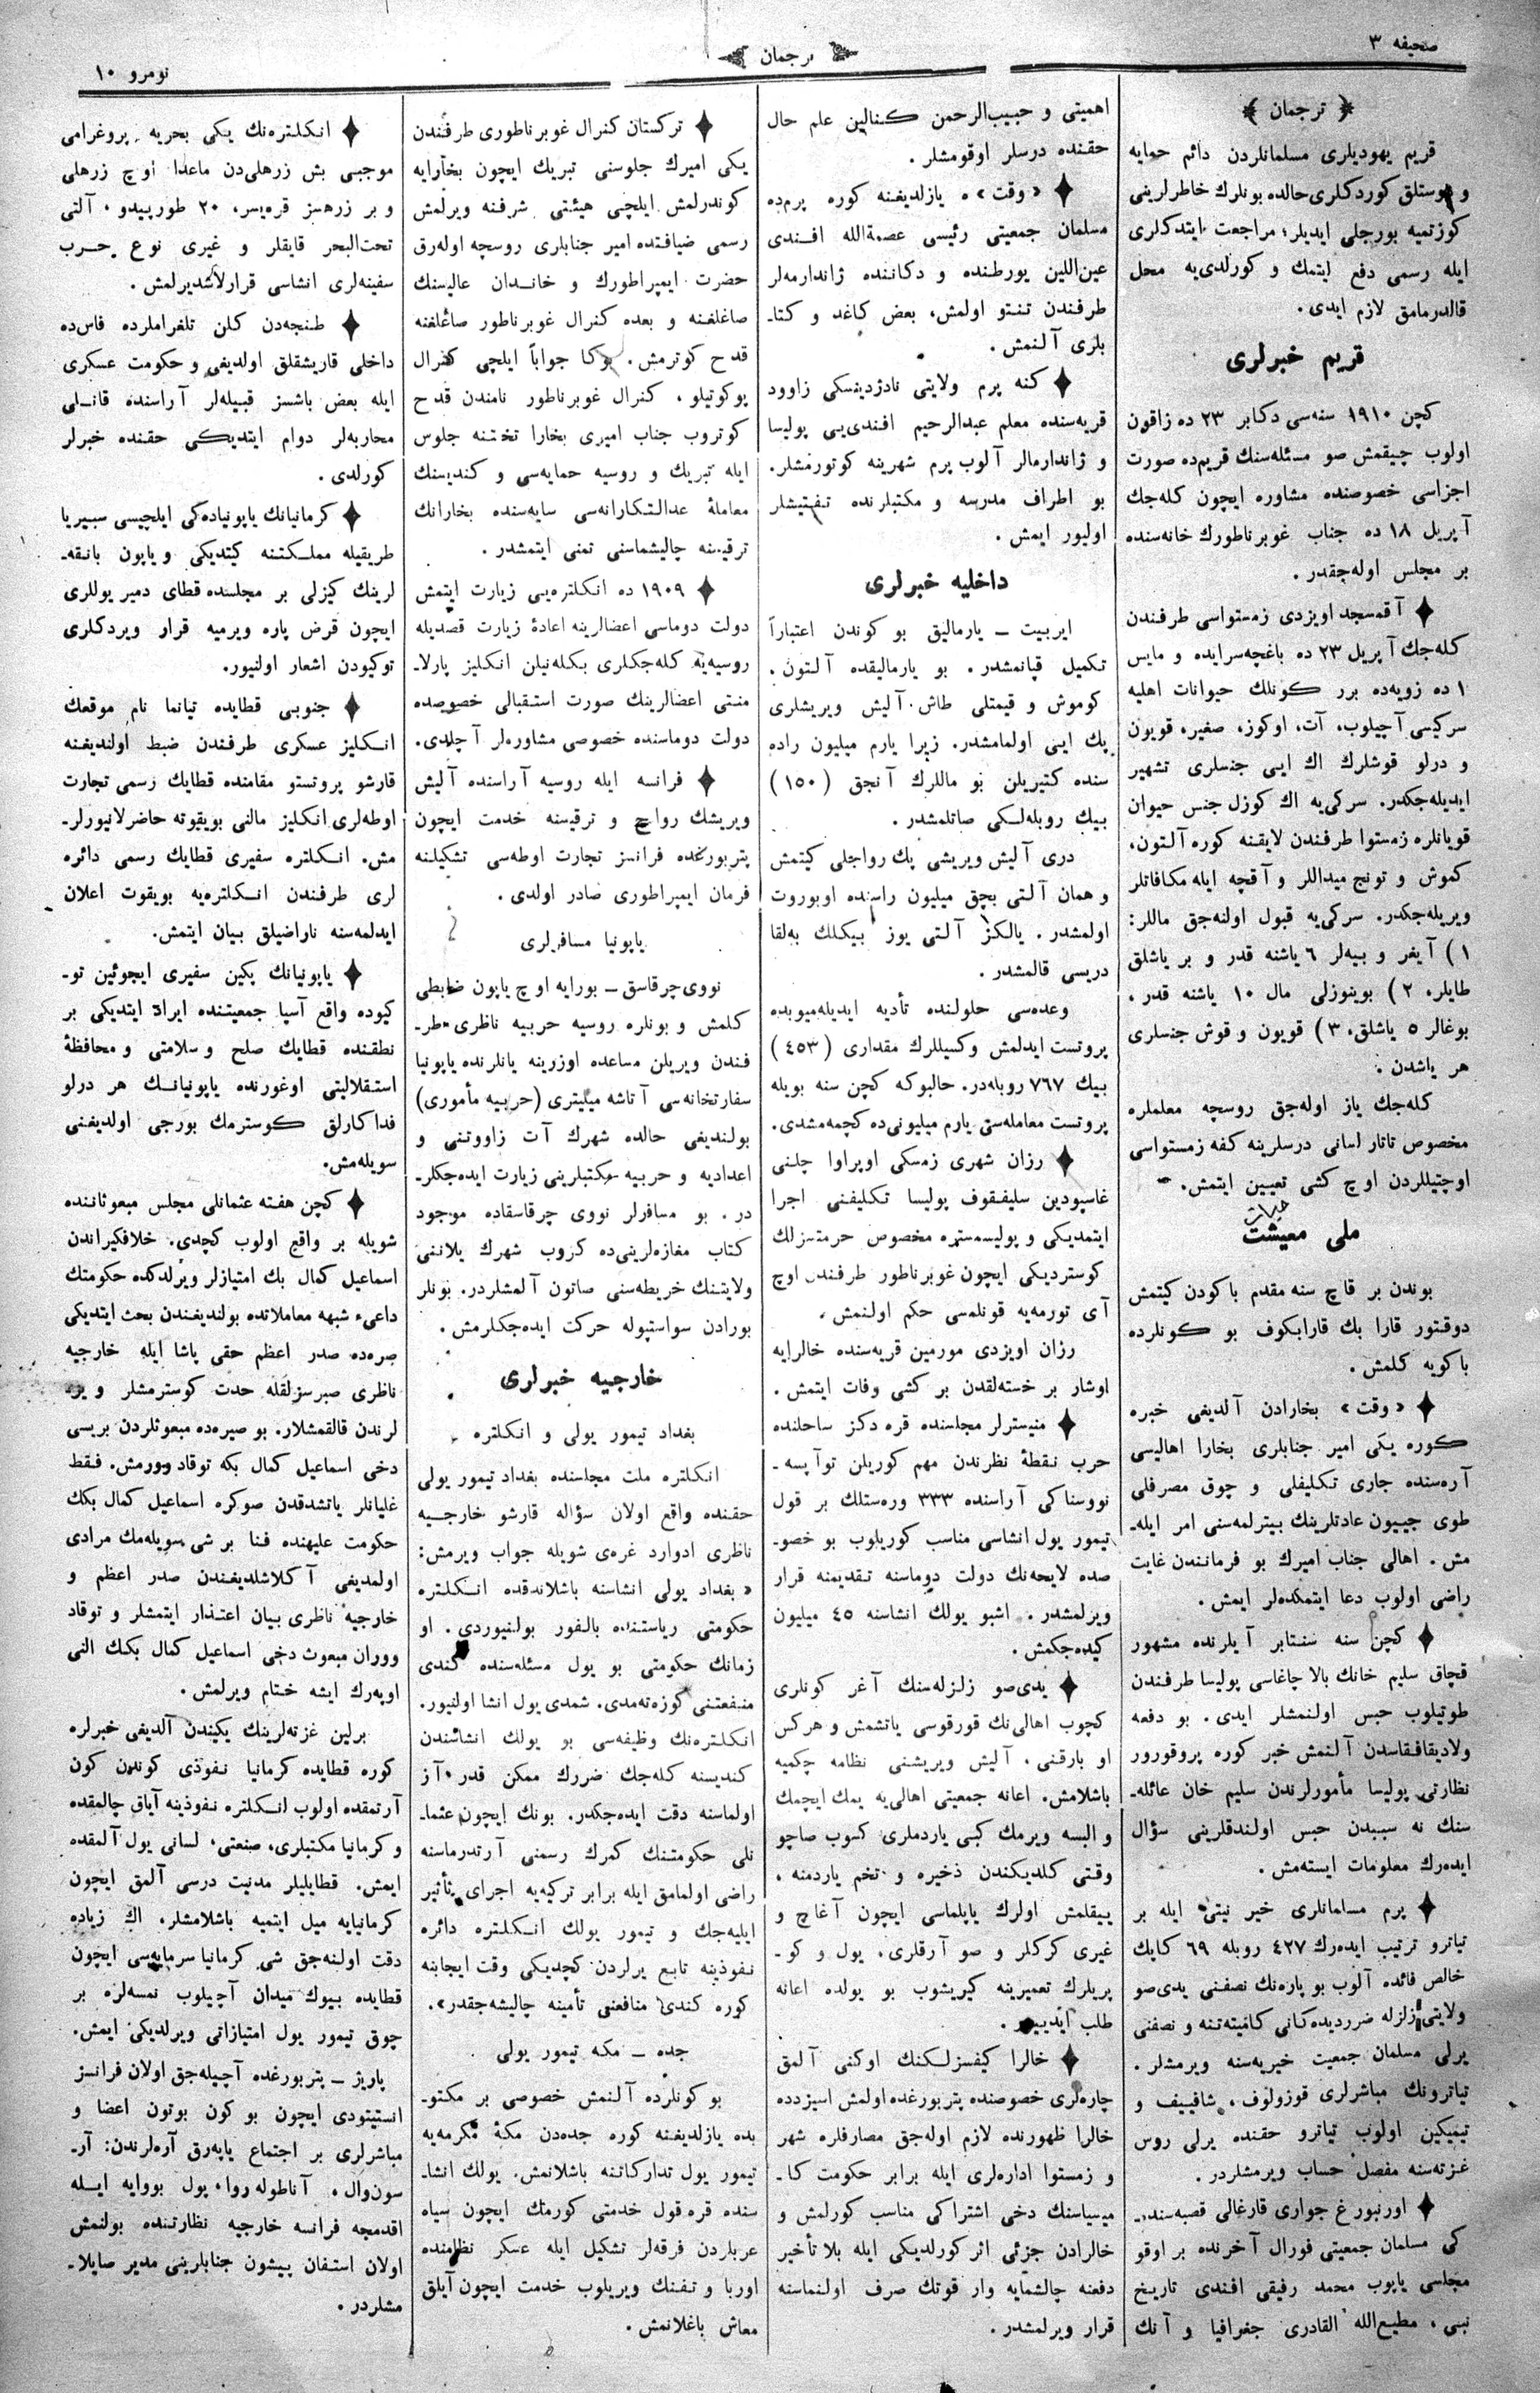 صحیفه ٣
ترجمان
نومرو ١٠
﴿ ترجمان ﴾
قریم یهودیلری مسلمانلردن دائم حمایه
و دوستلق کوردکلری حالده بونلرك خاطرلرینی
کوزتمیه بورجلی ایدیلر؛ مراجعت ایتدکلری
ایله رسمی دفع ایتمك و کورلدی‌یه محل
قالدرمامق لازم ایدی.
قریم خبرلری
کچن ١٩١٠ سنه‌سی دکابر ٢٣ ده زاقون
اولوب چیقمش صو مسئله‌سنك قریم‌ده صورت
اجراسی خصوصنده مشاوره ایچون کله‌جك
آپریل ١٨ ده جناب غوبرناطورك خانه‌سنده
بر مجلس اوله‌جقدر.
آقمسجد اویزدی زمستواسی طرفندن
کله‌جك آپریل ٢٣ ده باغچه‌سرایده و مایس
١ ده زویه‌ده برر کونلك حیوانات اهلیه
سرکیسی آچیلوب، آت، اوکوز، صغیر، قویون
و درلو قوشلرك اك ایی جنسلری تشهیر
ایدیله‌جکدر. سرکی‌یه اك کوزل جنس حیوان
قویانلره زمستوا طرفندن لایقنه کوره آلتون،
کموش و تونج میداللر و آقچه ایله مکافاتلر
ویریله‌جکدر. سرکی‌یه قبول اولنه‌جق ماللر:
١) آیغر و بیه‌لر ٦ یاشنه قدر و بر یاشلق
طایلر، ٢) بوینوزلی مال ١٠ یاشنه قدر،
بوغالر ٥ یاشلق، ٣) قویون و قوش جنسلری
هر یاشدن.
کله‌جك یاز اوله‌جق روسچه معلملره
مخصوص تاتار لسانی درسلرینه کفه زمستواسی
اوچتیللردن اوچ کشی تعیین ایتمش.
حیات
ملی معیشت
بوندن بر قاچ سنه مقدم باکودن کیتمش
دوقتور قارا بك قارابکوف بو کونلرده
باکویه کلمش.
«وقت» بخارادن آلدیغی خبره
کوره یکی امیر جنابلری بخارا اهالیسی
آره‌سنده جاری تکلیفلی و چوق مصرفلی
طوی جییون عادتلرینك بیترلمه‌سنی امر ایله‌ـ
مش. اهالی جناب امیرك بو فرمانندن غایت
راضی اولوب دعا ایتمکده‌لر ایمش.
کچن سنه سنتابر آیلرنده مشهور
قچاق سلیم خانك بالا چاغاسی پولیسا طرفندن
طوتیلوب حبس اولنمشلر ایدی. بو دفعه
ولادیقافقاسدن آلنمش خبر کوره پروقورور
نظارتی پولیسا مأمورلرندن سلیم خان عائله‌ـ
سنك نه سببدن حبس اولندقلرینی سؤال
ایده‌رك معلومات ایسته‌مش.
پرم مسلمانلری خیر نیتی ایله بر
تیاترو ترتیب ایده‌رك ٤٢٧ روبله ٦٩ کاپك
خالص فائده آلوب بو پاره‌نك نصفنی یدی‌صو
ولایتی زلزله ضرردیده‌کانی کامیته‌تنه و نصفنی
یرلی مسلمان جمعیت خیریه‌سنه ویرمشلر.
تیاترونك مباشرلری قوزولوف، شافییف و
تیمیکین اولوب تیاترو حقنده یرلی روس
غزته‌سنه مفصل حساب ویرمشلردر.
اورنبورغ جواری قارغالی قصبه‌سنده‌ـ
کی مسلمان جمعیتی فورال آخرنده بر اوقو
مجلسی یاپوب محمد رفیقی افندی تاریخ
نبی، مطیع‌الله القادری جغرافیا و آنك
اهمیتی و حبیب‌الرحمن کنالین علم حال
حقنده درسلر اوقومشلر.
«وقت» ه یازلدیغنه کوره پرم‌ده
مسلمان جمعیتی رئیسی عصمةالله افندی
عین‌اللین یورطنده و دکاننده ژاندارمه‌لر
طرفندن تنتو اولمش، بعض کاغد و کتاـ
بلری آلنمش.
کنه پرم ولایتی نادژدینسکی زاوود
قریه‌سنده معلم عبدالرحیم افندی‌یی پولیسا
و ژاندارمالر آلوب پرم شهرینه کوتورمشلر.
بو اطراف مدرسه و مکتبلرنده تفتیشلر
اولیور ایمش.
داخلیه خبرلری
ایربیت ـ یارمالیق بو کوندن اعتباراً
تکمیل قپانمشدر. بو یارمالیقده آلتون،
کوموش و قیمتلی طاش آلیش ویریشلری
پك ایی اولمامشدر. زیرا یارم میلیون راده
سنده کتیریلن بو ماللرك آنجق (١٥٠)
بیك روبله‌لکی صاتلمشدر.
دری آلیش ویریشی پك رواجلی کیتمش
و همان آلتی بچق میلیون راسنده اوبوروت
اولمشدر. یالکز آلتی یوز بیکلك به‌لقا
دریسی قالمشدر.
وعده‌سی حلولنده تأدیه ایدیله‌میوبده
پروتست ایدلمش وکسیللرك مقداری (٤٥٣)
بیك ٧٦٧ روبله‌در. حالبوکه کچن سنه بویله
پروتست معامله‌سی یارم میلیونی‌ده کچمه‌مشدی.
رزان شهری زمسکی اوپراوا چلنی
غاسپودین سلیفقوف پولیسا تکلیفنی اجرا
ایتمدیکی و پولیسمستره مخصوص حرمتسزلك
کوستردیکی ایچون غوبرناطور طرفندن اوچ
آی تورمه‌یه قونلمسی حکم اولنمش.
رزان اویزدی مورمین قریه‌سنده خالرایه
اوشار بر خسته‌لقدن بر کشی وفات ایتمش.
منیسترلر مجلسنده قره دکز ساحلنده
حرب نقطۀ نظرندن مهم کوریلن توآپسه‌ـ
نووسناکی آراسنده ٣٣٣ ورستلك بر قول
تیمور یول انشاسی مناسب کوریلوب بو خصوـ
صده لایحه‌نك دولت دوماسنه تقدیمنه قرار
ویرلمشدر. اشبو یولك انشاسنه ٤٥ میلیون
کیده‌جکمش.
یدی‌صو زلزله‌سنك آغر کونلری
کچوب اهالی‌نك قورقوسی یاتشمش و هرکس
او بارقنی، آلیش ویریشنی نظامه چکمیه
باشلامش. اعانه جمعیتی اهالی‌یه یمك ایچمك
و البسه ویرمك کبی یاردملری کسوب صاچو
وقتی کلدیکندن ذخیره و تخم یاردمنه،
ییقلمش اولرك یاپلماسی ایچون آغاچ و
غیری کرکلر و صو آرقلری، یول و کوـ
پریلرك تعمیرینه کیریشوب بو یولده اعانه
طلب ایدییور.
خالرا کیفسزلکنك اوکنی آلمق
چاره‌لری خصوصنده پتربورغده اولمش اسیزدده
خالرا ظهورنده لازم اوله‌جق مصارفلره شهر
و زمستوا اداره‌لری ایله برابر حکومت کاـ
میسیاسنك دخی اشتراکی مناسب کورلمش و
خالرادن جزئی اثر کورلدیکی ایله بلا تأخیر
دفعنه چالشمایه وار قوتك صرف اولنماسنه
قرار ویرلمشدر.
ترکستان کنرال غوبرناطوری طرفندن
یکی امیرك جلوسنی تبریك ایچون بخارایه
کوندرلمش ایلچی هیئتی شرفنه ویرلمش
رسمی ضیافتده امیر جنابلری روسچه اوله‌رق
حضرت ایمپراطورك و خاندان عالیسنك
صاغلغنه و بعده کنرال غوبرناطور صاغلغنه
قدح کوترمش. بوکا جواباً ایلچی کنرال
یوکوتیلو، کنرال غوبرناطور نامندن قدح
کوتروب جناب امیری بخارا تختنه جلوس
ایله تبریك و روسیه حمایه‌سی و کندیسنك
معاملۀ عدالتکارانه‌سی سایه‌سنده بخارانك
ترقیسنه چالیشماسنی تمنی ایتمشدر.
١٩٠٩ ده انکلتره‌یی زیارت ایتمش
دولت دوماسی اعضالرینه اعادۀ زیارت قصدیله
روسیه‌یه کله‌جکلری بکله‌نیلن انکلیز پارلاـ
منتی اعضالرینك صورت استقبالی خصوصده
دولت دوماسنده خصوصی مشاوره‌لر آچلدی.
فرانسه ایله روسیه آراسنده آلیش
ویریشك رواج و ترقیسنه خدمت ایچون
پتربورغده فرانسز تجارت اوطه‌سی تشکیلنه
فرمان ایمپراطوری صادر اولدی.
یاپونیا مسافرلری
نووی‌چرقاسق ـ بورایه اوچ یاپون ضابطی
کلمش و بونلره روسیه حربیه ناظری طرـ
فندن ویریلن مساعده اوزرینه یانلرنده یاپونیا
سفارتخانه‌سی آتاشه میلیتری (حربیه مأموری)
بولندیغی حالده شهرك آت زاووتنی و
اعدادیه و حربیه مکتبلرینی زیارت ایده‌جکلرـ
در. بو مسافرلر نووی چرقاسقاده موجود
کتاب مغازه‌لرینی‌ده کزوب شهرك پلاننی
ولایتنك خریطه‌سنی صاتون آلمشلردر. بونلر
بورادن سواستپوله حرکت ایده‌جکلرمش.
خارجیه خبرلری
بغداد تیمور یولی و انکلتره
انکلتره ملت مجلسنده بغداد تیمور یولی
حقنده واقع اولان سؤاله قارشو خارجیه
ناظری ادوارد غره‌ی شویله جواب ویرمش:
«بغداد یولی انشاسنه باشلاندقده انکلتره
حکومتی ریاستنده بالفور بولنیوردی. او
زمانك حکومتی بو یول مسئله‌سنده کندی
منفعتنی کوزه‌ته‌مدی. شمدی یول انشا اولنیور.
انکلتره‌نك وظیفه‌سی بو یولك انشائندن
کندیسنه کله‌جك ضررك ممکن قدر آز
اولماسنه دقت ایده‌جکدر. بونك ایچون عثماـ
نلی حکومتنك کمرك رسمنی آرتدرماسنه
راضی اولمامق ایله برابر ترکیه‌یه اجرای تأثیر
ایلیه‌جك و تیمور یولك انکلتره دائره
نفوذینه تابع یرلردن کچدیکی وقت ایجابنه
کوره کندی منافعنی تأمینه چالیشه‌جقدر».
جده ـ مکه تیمور یولی
بو کونلرده آلنمش خصوصی بر مکتوـ
بده یازلدیغنه کوره جده‌دن مکۀ مکرمه‌یه
تیمور یول تدارکاتنه باشلانمش. یولك انشاـ
سنده قره قول خدمتی کورمك ایچون سیاه
عربلردن فرقه‌لر تشکیل ایله عسکر نظامنده
اوربا و تفنك ویریلوب خدمت ایچون آیلق
معاش باغلانمش.
انکلتره‌نك یکی بحریه پروغرامی
موجبی بش زرهلی‌دن ماعدا اوچ زرهلی
و بر زرهسز قره‌یسر، ٢٠ طورپیدو، آلتی
تحت‌البحر قایقلر و غیری نوع حرب
سفینه‌لری انشاسی قرارلاشدیرلمش.
طنجه‌دن کلن تلغراملرده فاس‌ده
داخلی قاریشقلق اولدیغی و حکومت عسکری
ایله بعض باشسز قبیله‌لر آراسنده قانلی
محاربه‌لر دوام ایتدیکی حقنده خبرلر
کورلدی.
کرمانیانك یاپونیاده‌کی ایلچیسی سیبریا
طریقیله مملکتنه کیتدیکی و یاپون بانقه‌ـ
لرینك کیزلی بر مجلسنده قطای دمیر یوللری
ایچون قرض پاره ویرمیه قرار ویردکلری
توکیودن اشعار اولنیور.
جنوبی قطایده تیانما نام موقعك
انکلیز عسکری طرفندن ضبط اولندیغنه
قارشو پروتستو مقامنده قطایك رسمی تجارت
اوطه‌لری انکلیز مالنی بویقوته حاضرلانیورلرـ
مش. انکلتره سفیری قطایك رسمی دائره
لری طرفندن انکلتره‌یه بویقوت اعلان
ایدلمه‌سنه ناراضیلق بیان ایتمش.
یاپونیانك پکین سفیری ایجوئین توـ
کیوده واقع آسیا جمعیتنده ایراد ایتدیکی بر
نطقنده قطایك صلح و سلامتی و محافظۀ
استقلالیتی اوغورنده یاپونیانك هر درلو
فداکارلق کوسترمك بورجی اولدیغنی
سویله‌مش.
کچن هفته عثمانلی مجلس مبعوثاننده
شویله بر واقع اولوب کچدی. خلافکیراندن
اسماعیل کمال بك امتیازلر ویرلدکده حکومتك
داعیء شبهه معاملاتده بولندیغندن بحث ایتدیکی
صره‌ده صدر اعظم حقی پاشا ایله خارجیه
ناظری صبرسزلقله حدت کوسترمشلر و یرـ
لرندن قالقمشلار. بو صیره‌ده مبعوثلردن بریسی
دخی اسماعیل کمال بکه توقاد وورمش. فقط
غلیانلر یاتشدقدن صوکره اسماعیل کمال بکك
حکومت علیهنده فنا بر شی سویله‌مك مرادی
اولمدیغی آکلاشلدیغندن صدر اعظم و
خارجیه ناظری بیان اعتذار ایتمشلر و توقاد
ووران مبعوث دخی اسماعیل کمال بکك النی
اوپه‌رك ایشه ختام ویرلمش.
برلین غزته‌لرینك پکیندن آلدیغی خبرلره
کوره قطایده کرمانیا نفوذی کوندن کون
آرتمقده اولوب انکلتره نفوذینه آیاق چالمقده
و کرمانیا مکتبلری، صنعتی، لسانی یول آلمقده
ایمش. قطایلیلر مدنیت درسی آلمق ایچون
کرمانیایه میل ایتمیه باشلامشلر، اك زیاده
دقت اولنه‌جق شی کرمانیا سرمایه‌سی ایچون
قطایده بیوك میدان آچیلوب نمسه‌لره بر
چوق تیمور یول امتیازاتی ویرلدیکی ایمش.
پاریژ ـ پتربورغده آچیله‌جق اولان فرانسز
انستیتودی ایچون بو کون بوتون اعضا و
مباشرلری بر اجتماع یاپه‌رق آره‌لرندن: آرـ
سون‌وال، آناطوله روا، پول بووایه ایله
اقدمجه فرانسه خارجیه نظارتنده بولنمش
اولان استفان پیشون جنابلرینی مدیر صایلاـ
مشلردر.